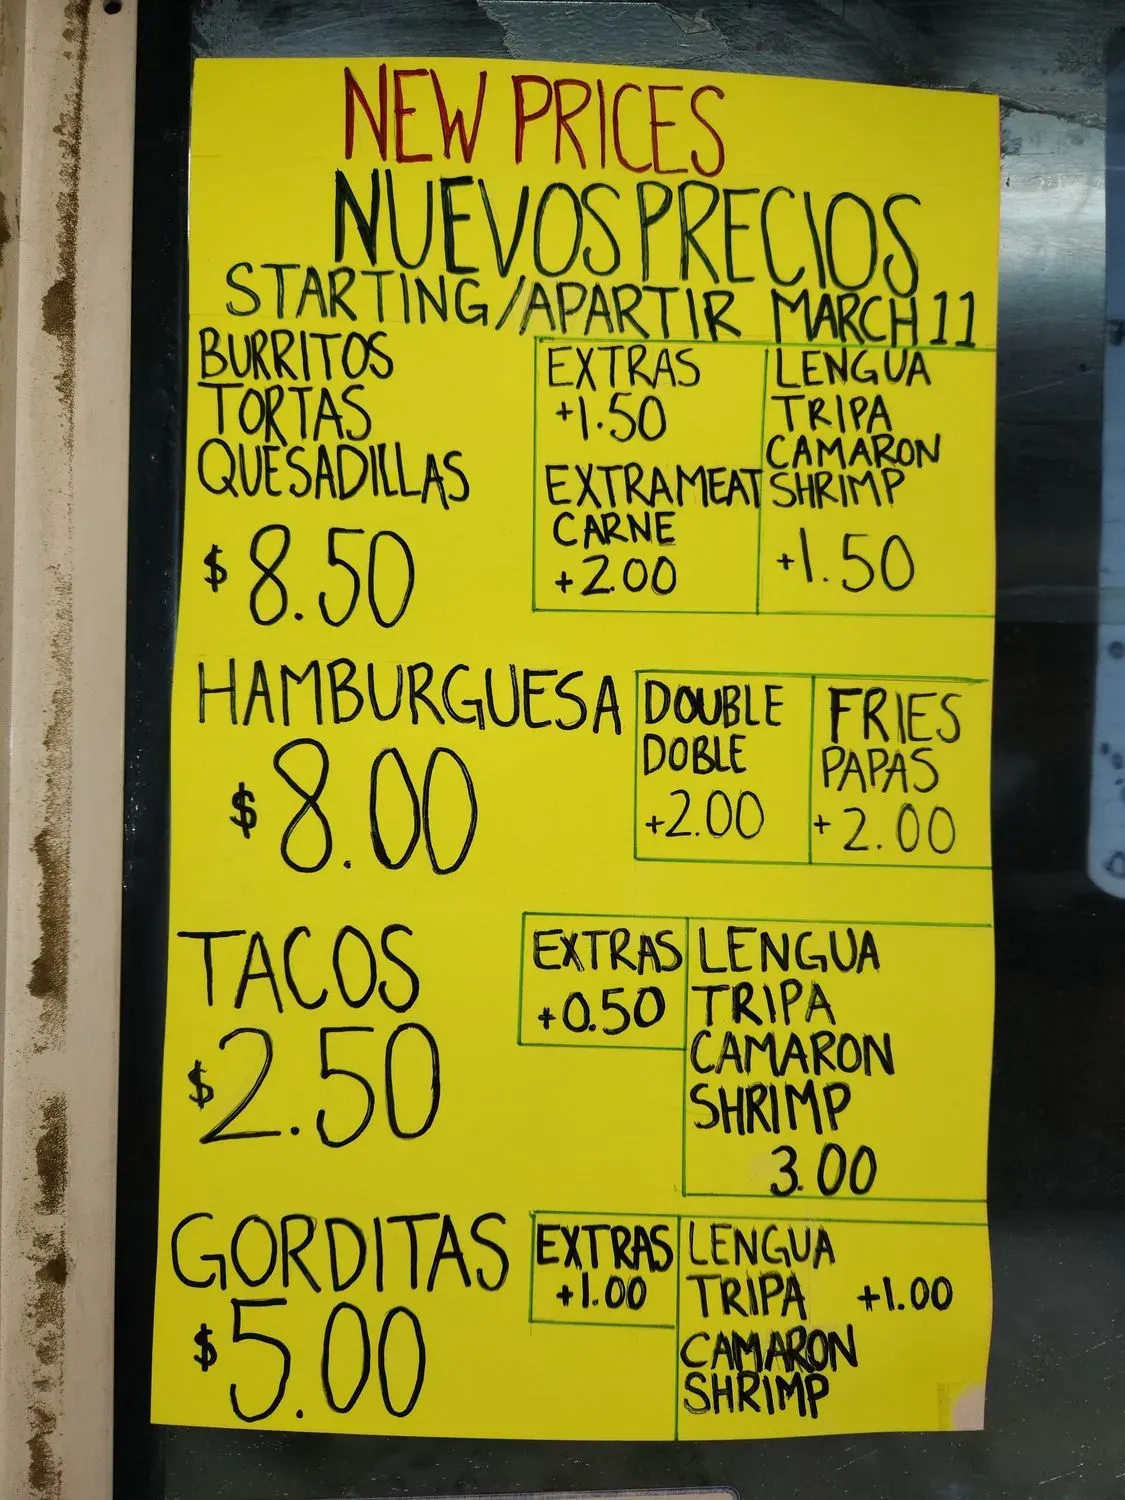 NEW PRICES
NUEVOS PRECIOS
STARTING/APARTIR MARCH 11
BURRITOS
TORTAS
QUESADILLAS
$8.50
EXTRAS
+1.50
EXTRA MEAT
CARNE
+2.00
LENGUA
TRIPA
CAMARON
SHRIMP
+1.50
HAMBURGUESA
$8.00
DOUBLE
DOBLE
+2.00
FRIES
PAPAS
+2.00
TACOS
$2.50
EXTRAS
+0.50
LENGUA
TRIPA
CAMARON
SHRIMP
3.00
GORDITAS
$5.00
EXTRAS
+1.00
LENGUA
TRIPA +1.00
CAMARON
SHRIMP